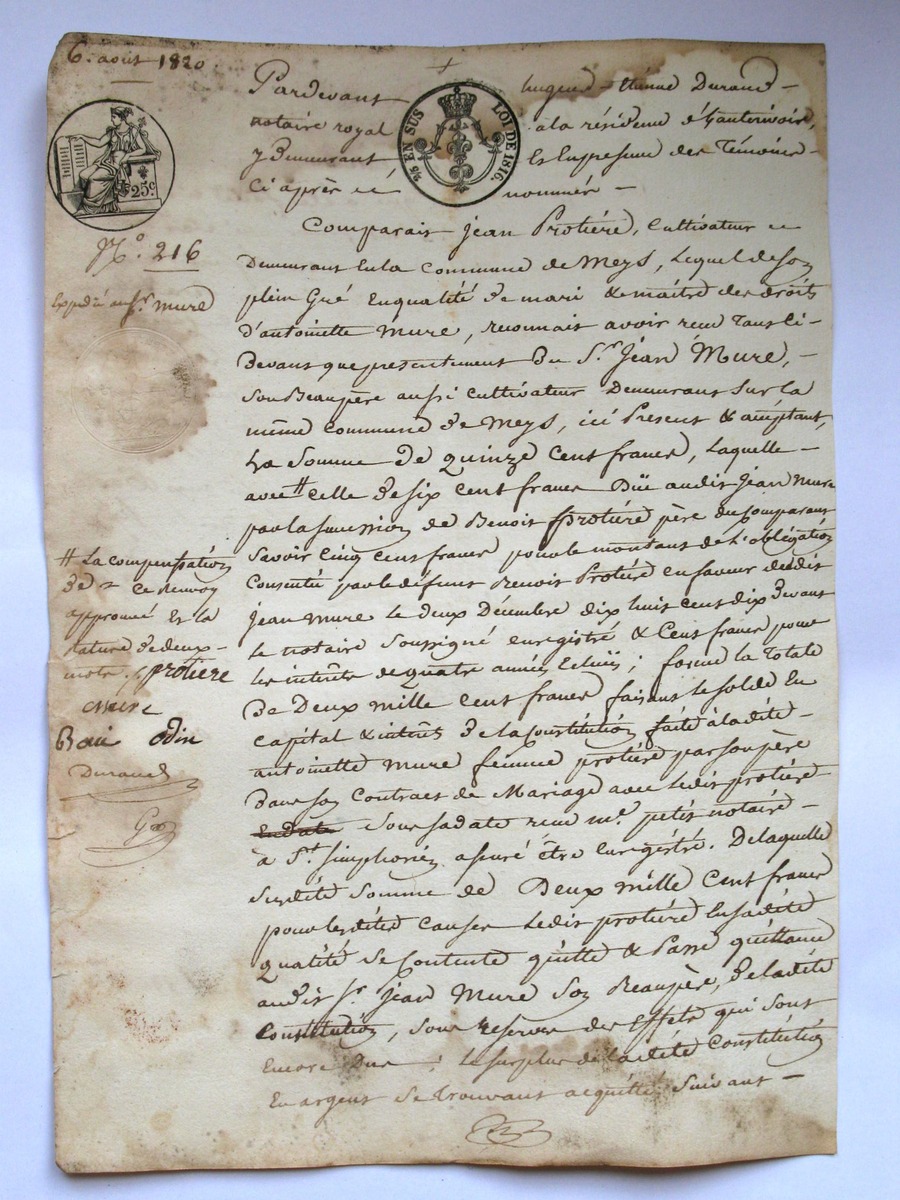 6. aout 1820
Pardevant Eugene-Etienne Durand-
notaire royal à la résidence d'hauterivoire,
y demeurant Et En presence des Témoins-
ci après nommés-
25 EN SUS
LOI DE 1816.
25c
No. 216
Expedié au Sr. mure
Comparait jean Protière, Cultivateur
Demeurant En la Commune de Meys, Lequel de son
plein Gré En qualité de mari & maitre des droits
d'antoinette mure, reconnait avoir reçu Tant Ci-
Devant que presentement Du Sr. Jean Mure,-
Son Beaupère aussi Cultivateur Demeurant Sur la
même Commune de Meys, ici Présent & acceptant,
La Somme de quinze Cent francs, Laquelle-
avec # celle de six Cent francs Düe audit Jean Mure
par la succession de Benoit protière père du Comparant
Savoir Cinq Cent francs pour le montant de l'obligation
Consentie par le défunt Benoit Protière en faveur dudit
jean mure le deux Décembre dix huit cent dix devant
le notaire Soussigné enregistré & Cent francs pour
les intérêts de quatre années Echüs; forme la Totale
De Deux mille Cent francs faisant le solde En
Capital & intérêts de la Constitution faite à la dite-
antoinette mure femme protière par son père
Dans son Contract de Mariage avec Ledit protière
En date Sous sa date reçu me. petit notaire-
à St. simphorien assuré être Enregistré. De laquelle
Susdite Somme de Deux mille Cent francs
pour lesdites Causes Ledit protière En sadite
Qualité se Contente quitte & Passe quittance
audit Sr. Jean Mure Son Beaupère, de ladite
Constitution, Sous reserve des Effets qui sont
Encore Dus; Le surplus de ladite Constitution
En argent se trouvant acquitté Suivant-
# La compensation
de Ce Renvoy
approuvé Et la
rature de deux-
mots protiere
mure
Boui odin
Durand